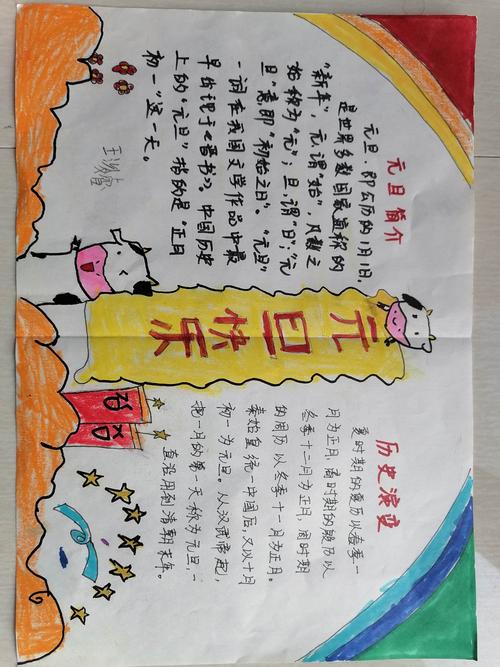 元旦简介
元旦,即公历的1月1日,
是世界多数国家通称的
"新年",元,谓"始",凡数之
始称为"元";旦,谓"日";"元
旦"意即"初始之日"。"元旦"
一词在我国文学作品中最
早现于《晋书》,中国历史
上的"元旦"指的是"正月
初一"这一天。
元旦快乐
历史演变
夏时期的夏历以春季一
月为正月,商时期的殷历以
冬季十二月为正月,周时期
的周历以冬季十一月为正月。
秦始皇统一中国后,又以十月
初一为元旦。从汉武帝起,
把一月的第一天称为元旦,一
直沿用到清朝末年。